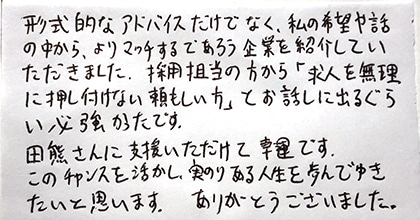 形式的なアドバイスだけでなく、私の希望や話
の中から、よりマッチするであろう企業を紹介してい
ただきました。採用担当の方から「求人を無理
に押し付けない頼もしい方」とお話しに出るぐら
い心強かたです。
田熊さんに支援いただけて幸運です。
このチャンスを活かし、実のりある人生を歩んでゆき
たいと思います。 ありがとうございました。